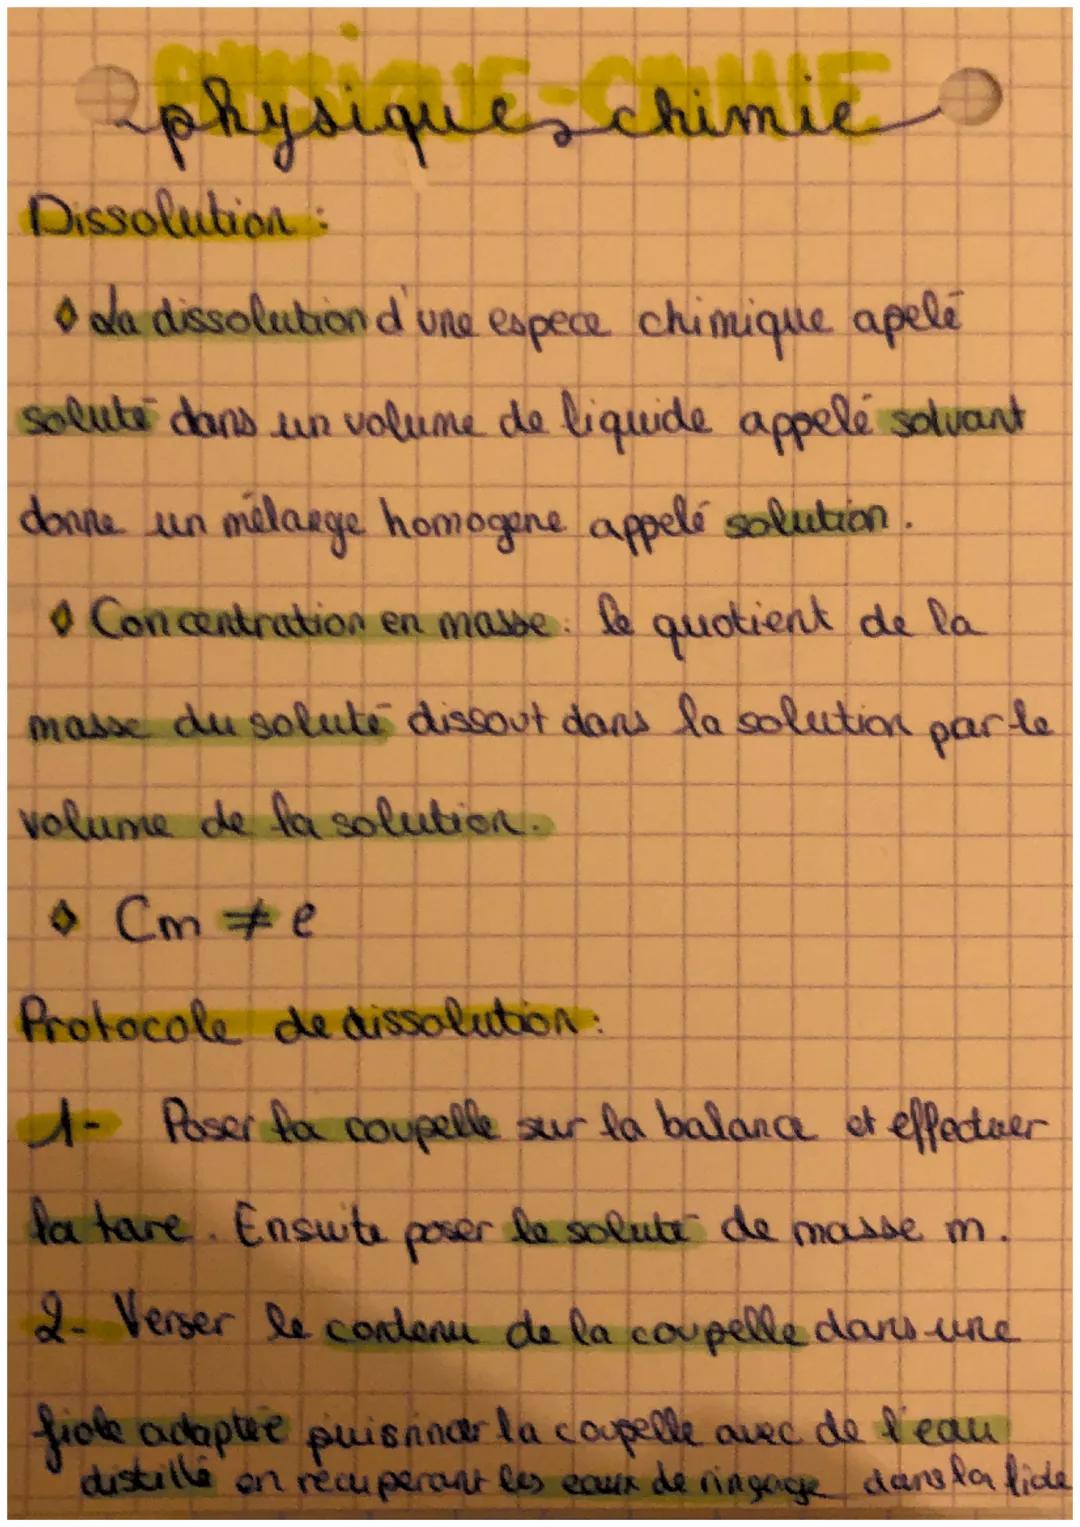 PHYSIQUE-CHIMIE
physique-chimie
Dissolution :
◊ La dissolution d'une espece chimique apelé
soluté dans un volume de liquide appelé solvant
donne un mélange homogene appelé solution.
◊ Concentration en masse : le quotient de la
masse du soluté dissout dans la solution par le
volume de la solution.
◊ Cm ≠ e
Protocole de dissolution :
1- Poser la coupelle sur la balance et effectuer
la tare. Ensuite poser le soluté de masse m.
2- Verser le contenu de la coupelle dans une
fiole adaptée puis rincer la coupelle avec de l'eau
distillé en récuperant les eaux de ringage dans la fiole